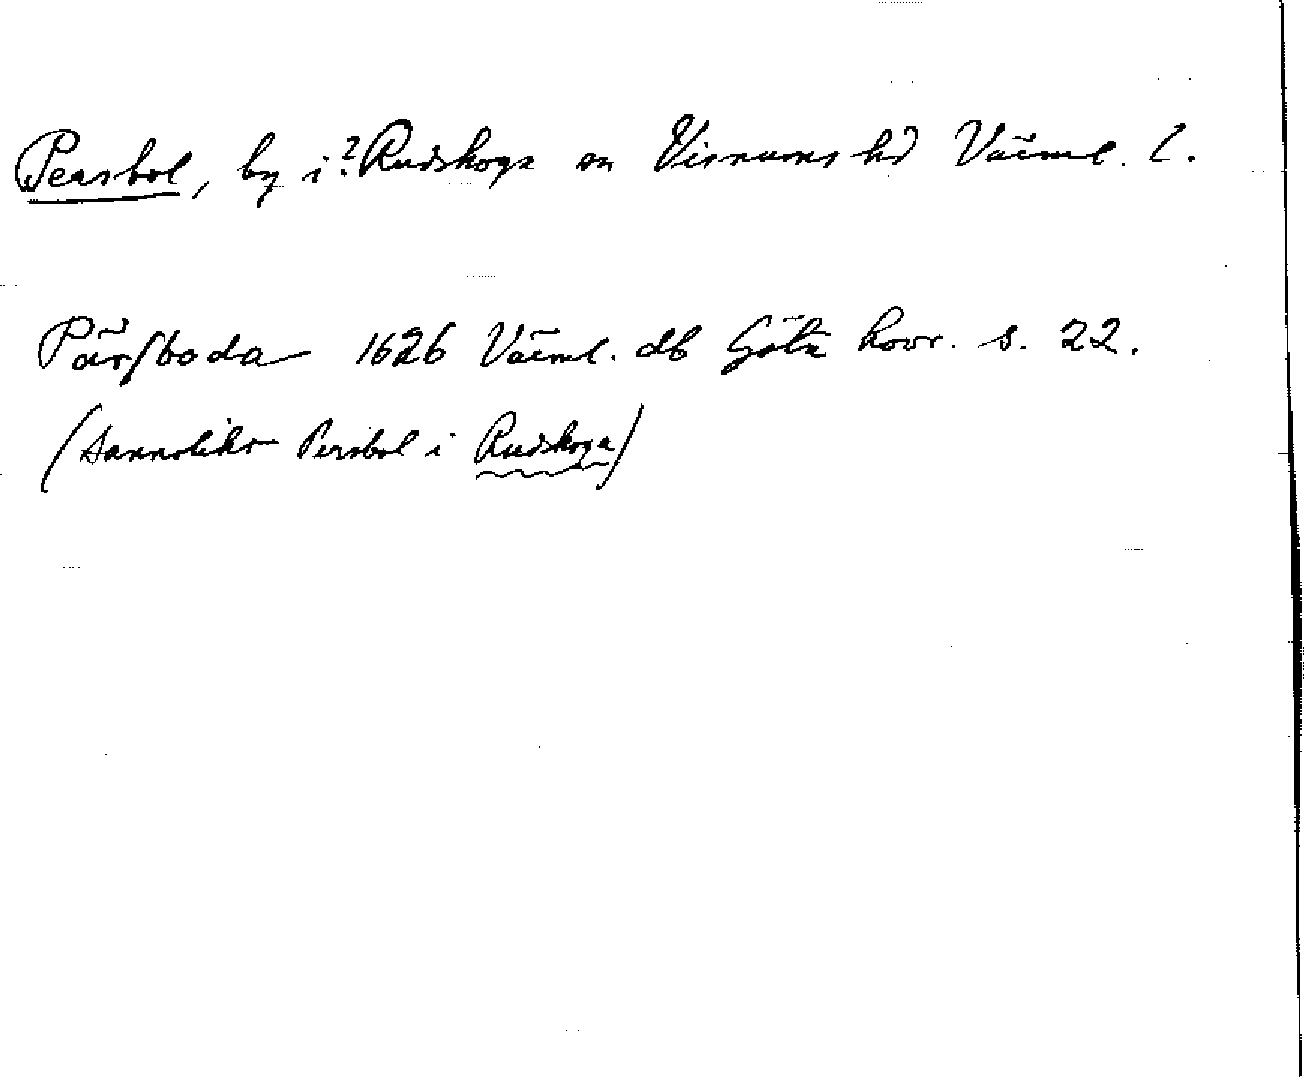 Persbol, by i ? Rudskoga sn Visnums hd Värml. l.
Pärsboda 1626 Värml. db Göta hovr. s. 22.
(Sannolikt Persbol i Rudskoga)